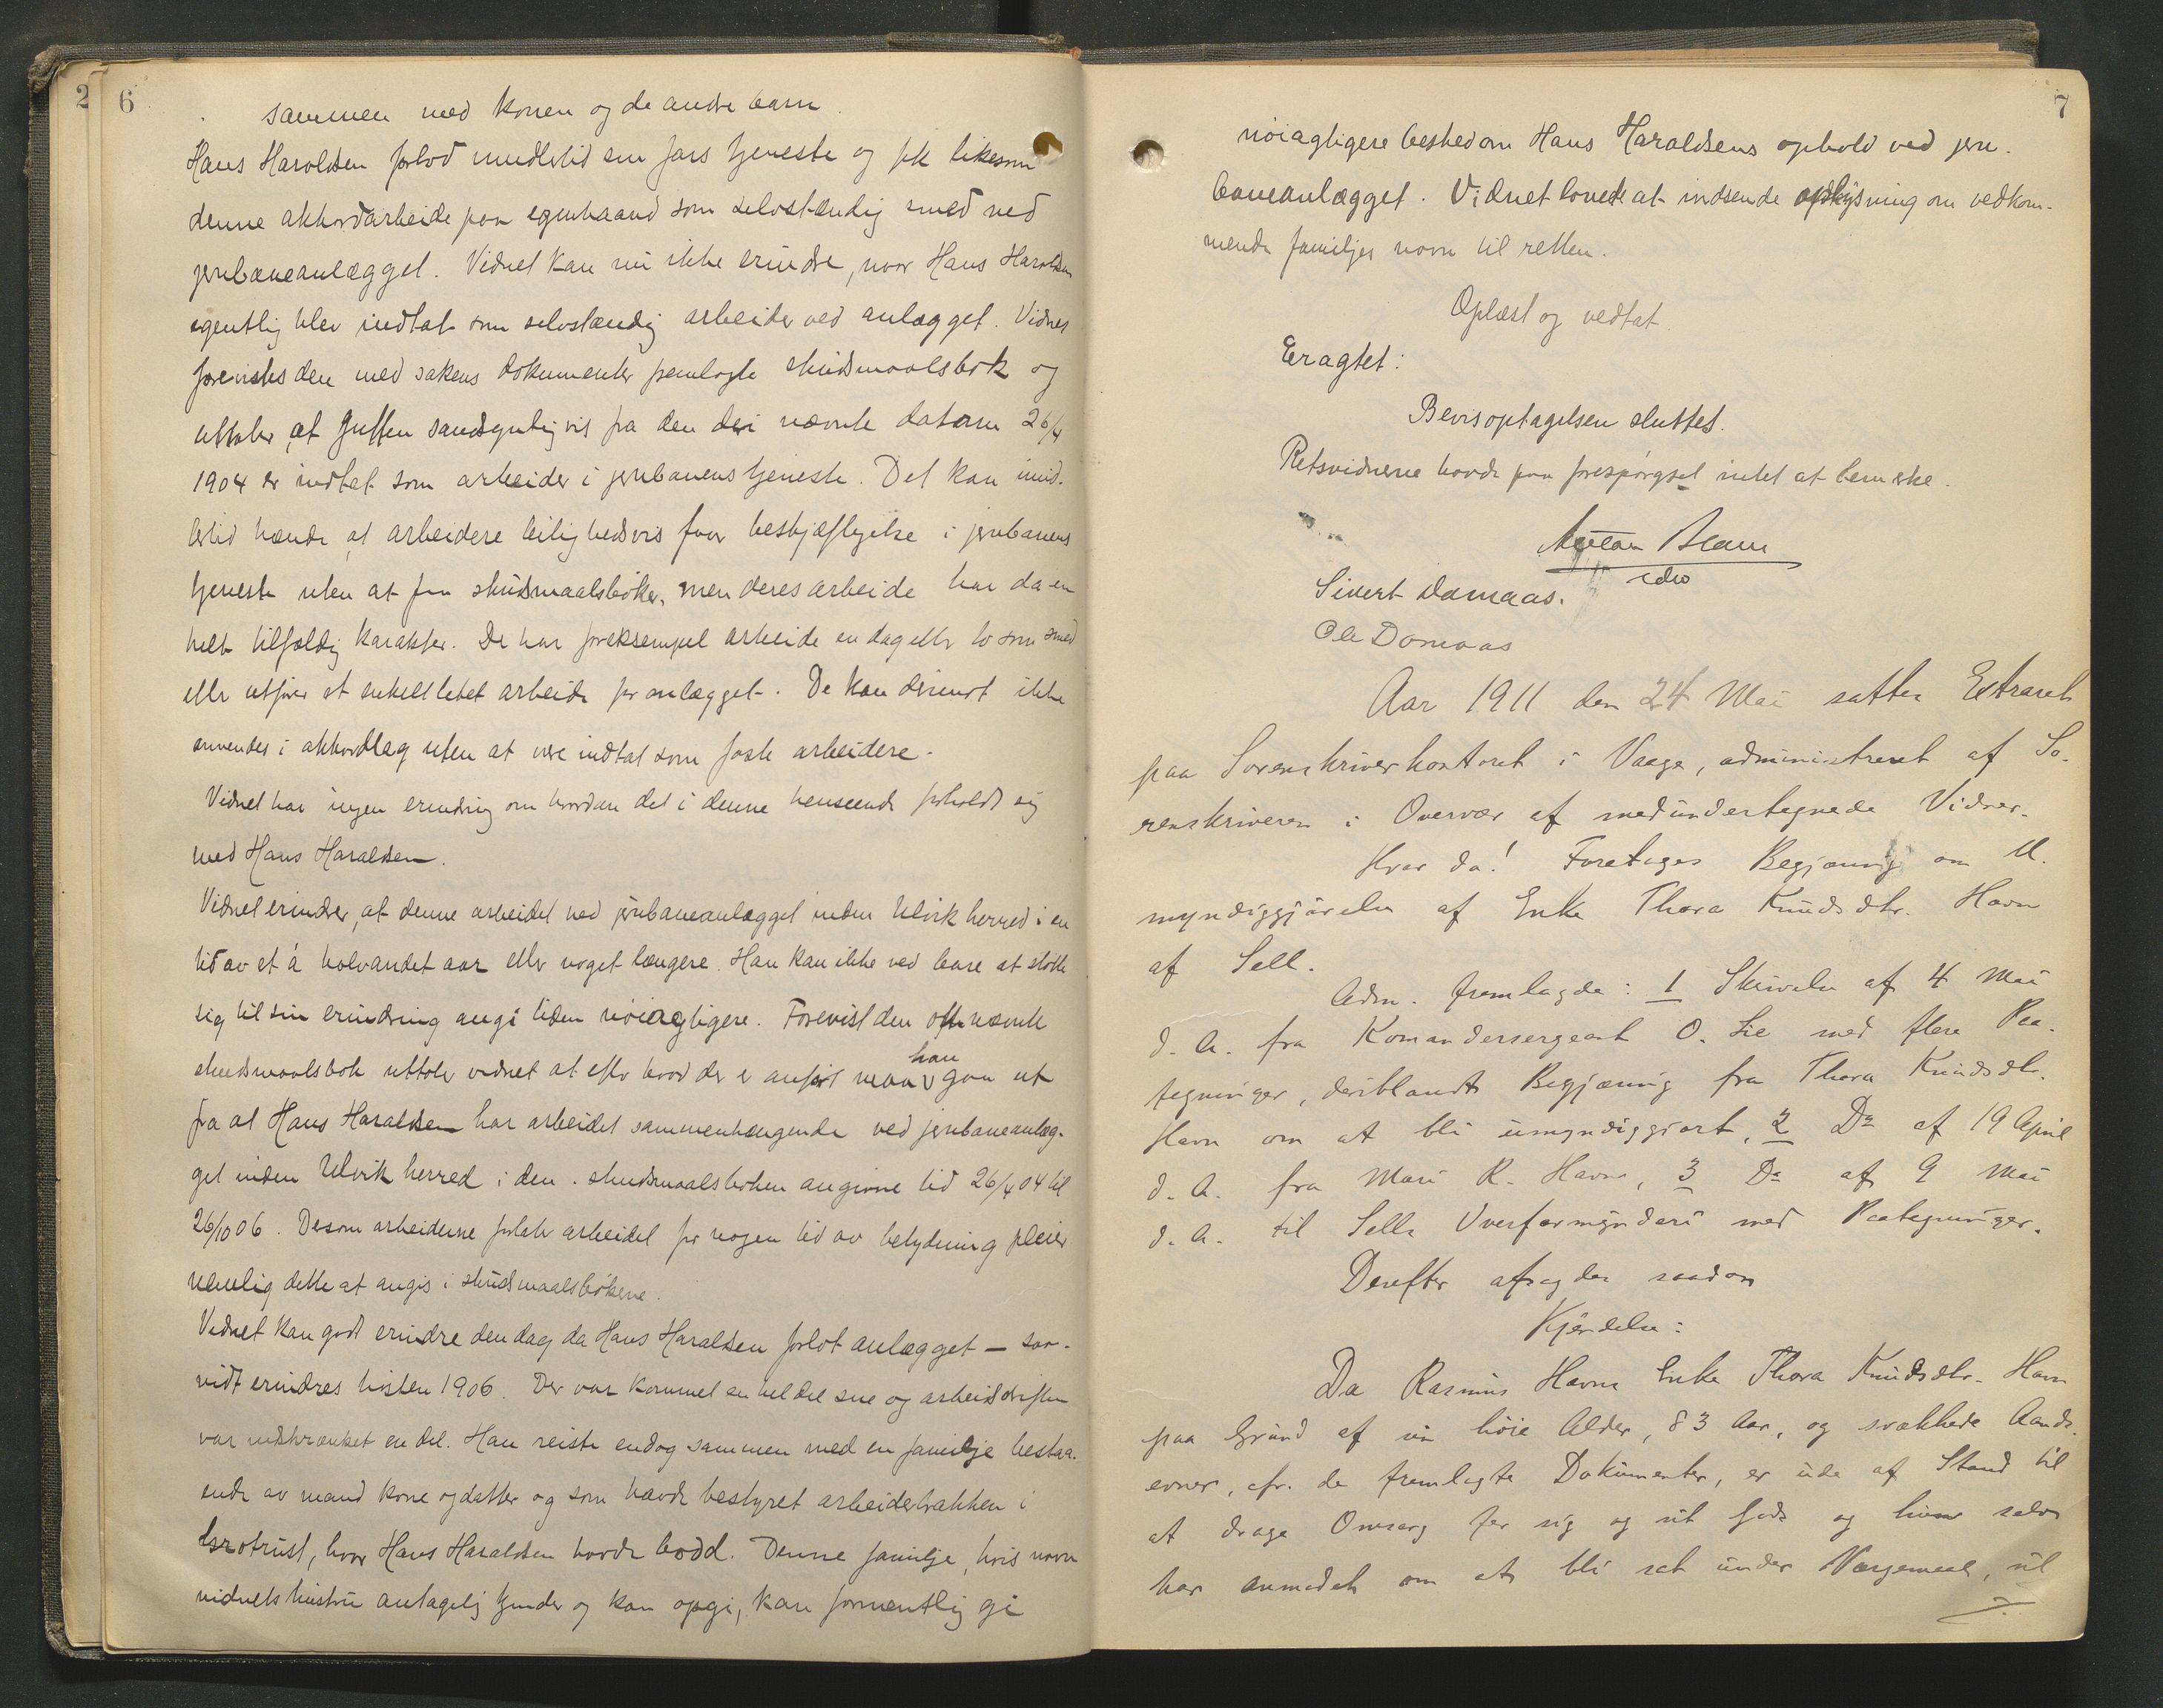 2 6
sammen med konen og de andre barn
Hans Haraldsen forlod imidlertid sin fars tjeneste og fik likesom
denne akkordarbeide paa egenhaand som selvstændig smed ved
jernbaneanlægget. Vidnet kan nu ikke erindre, naar Hans Haraldsen
egentlig blev indtat som selvstændig arbeider ved anlægget. Vidnet
forevistes den med sakens dokumenter fremlagte skudsmaalsbok og
uttaler, at gutten sandsynligvis fra den deri nævnte datum 26/4
1904 er indtat som arbeider i jernbanens tjeneste. Det kan imid-
lertid hænde at arbeidere leilighedsvis faar beskjæftigelse i jernbanens
tjeneste uten at faa skudsmaalsbøker, men deres arbeide har da en
helt tilfældig karakter. De har foreksempel arbeide en dag eller to som smed
eller utfører et enkelt lettet arbeide for anlægget. De kan derimot ikke
anvendes i akkordlag uten at være indtat som faste arbeidere.
Vidnet har ingen erindring om hvordan det i denne henseende forholdt sig
med Hans Haraldsen.
Vidnet erindrer, at denne arbeidet ved jernbaneanlægget inden Ulvik herred i en
tid av et á halvandet aar eller noget længere. Han kan ikke ved bare at støtte
sig til sin erindring angi tiden nöiagtigere. Forevist den oftnævnte
skudsmaalsbok uttaler vidnet at efter hvad der er anført maa han gaa ut
fra at Hans Haraldsen har arbeidet sammenhængende ved jernbaneanlæg-
get inden Ulvik herred i den i skudsmaalsboken angivne tid 26/4 04 til
26/10 06. Dersom arbeiderne forlater arbeidet for nogen tid av betydning pleier
nemlig dette at angis i skudsmaalsbøkene.
Vidnet kan godt erindre den dag da Hans Haraldsen forlot anlægget – saa-
vidt erindres høsten 1906. Der var kommet en hel del sne og arbeidsdriften
var indskrænket en del. Han reiste endog sammen med en familje bestaa-
ende av mand kone og datter og som havde bestyret arbeiderbrakken i
hvor Hans Haraldsen havde bodd. Denne familje, hvis navn
vidnets hustru antagelig kjender og kan opgi, kan formentlig gi
7
nöiagtigere besked om Hans Haraldsens ophold ved jern-
baneanlægget. Vidnet lovede at indsende oplysning om vedkom-
mende familjes navn til retten.
Oplæst og vedtat.
Eragtet:
Bevisoptagelsen sluttet.
Retsvidnerne havde paa forespørgsel intet at bemerke.
Sivert Domaas.
Ole Domaas
Aar 1911 den 24 Mai sattes Extraret
paa Sorenskriverkontoret i Vaage, administreret af So-
renskriveren i Overvær af medundertegnede Vidner.
Hvor da! Foretages Begjæring om U-
myndiggjørelse af Enke Thora Knudsdtr. Havn
af Sell.
Adm. fremlagde: 1 Skrivelse af 4 Mai
d. A. fra Komandersergeant O. Lie med flere Paa-
tegninger, deriblandt Begjæring fra Thora Knudsdtr.
Havn om at bli umyndiggjort, 2 Do af 19 April
d. A. fra Mari R. Havn, 3 Do af 9 Mai
d. A. til Sells Overformynderi med Paategninger.
Derefter afsagdes saadan
Kjendelse:
Da Rasmus Havns Enke Thora Knudsdtr. Havn
paa Grund af sin høie Alder, 83 Aar, og svækkede Aands-
evner, cfr. de fremlagte Dokumenter, er ude af Stand til
at drage Omsorg for sig og sit Gods og hun selv
har anmodet om at bli sat under Værgemaal, vil